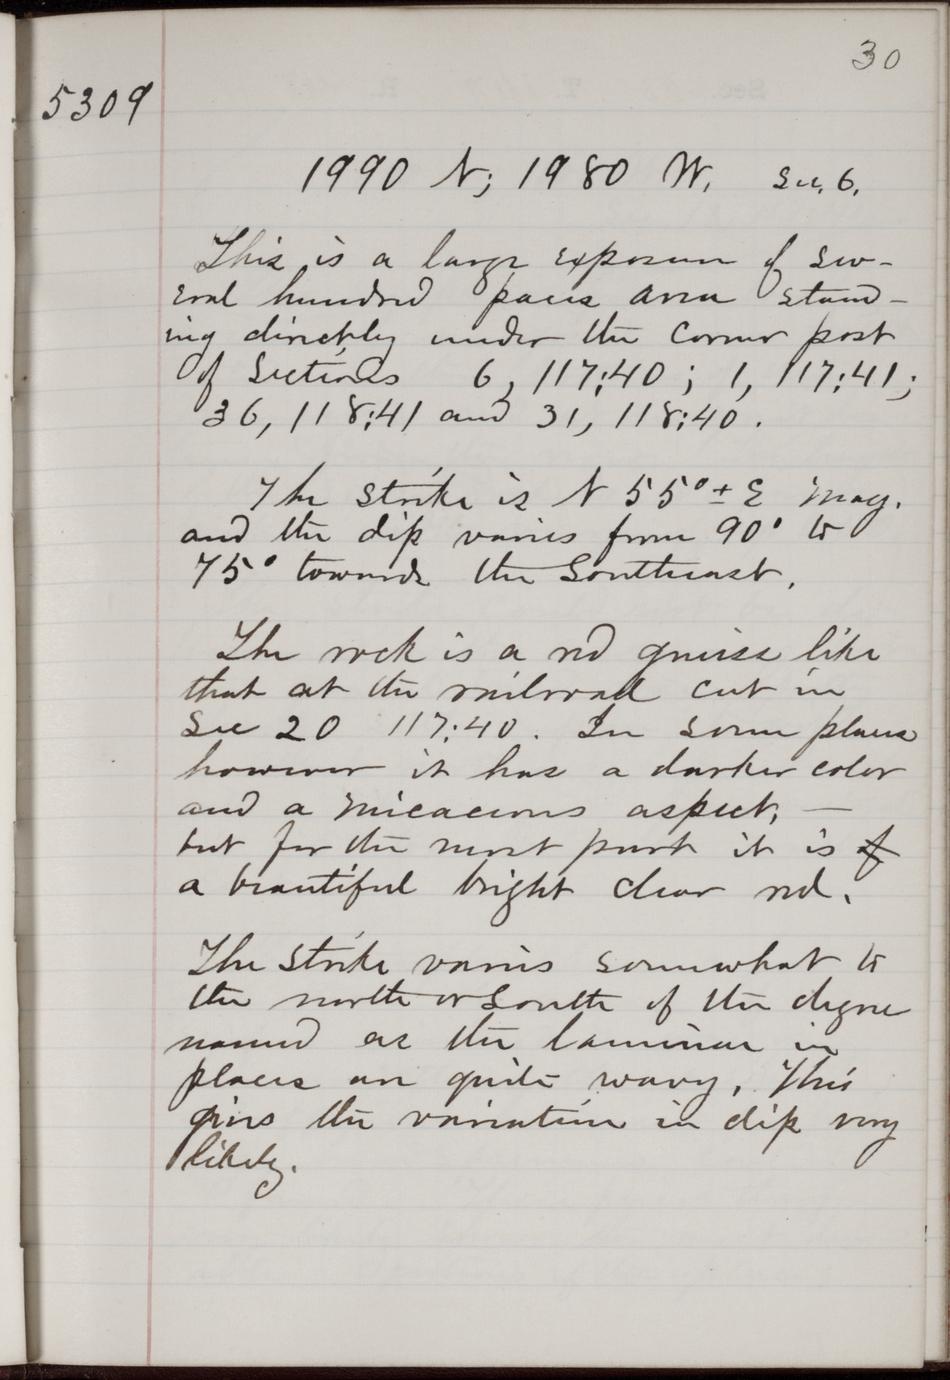 30
5309
1990 N; 1980 W. Sec. 6.
This is a large exposure of sev-
eral hundred paces area stand-
ing directly under the corner post
of Sections 6, 117:40; 1, 117:41;
36, 118:41 and 31, 118:40.
The strike is N 55°± E Mag.
and the dip varies from 90° to
75° towards the Southeast.
The rock is a red gneiss like
that at the railroad cut in
Sec 20 117:40. In some places
however it has a darker color
and a micaceous aspect, —
but for the most part it is of
a beautiful bright clear red.
The strike varies somewhat to
the north or South of the degree
named as the laminae in
places are quite wavy. This
gives the variation in dip very
likely.